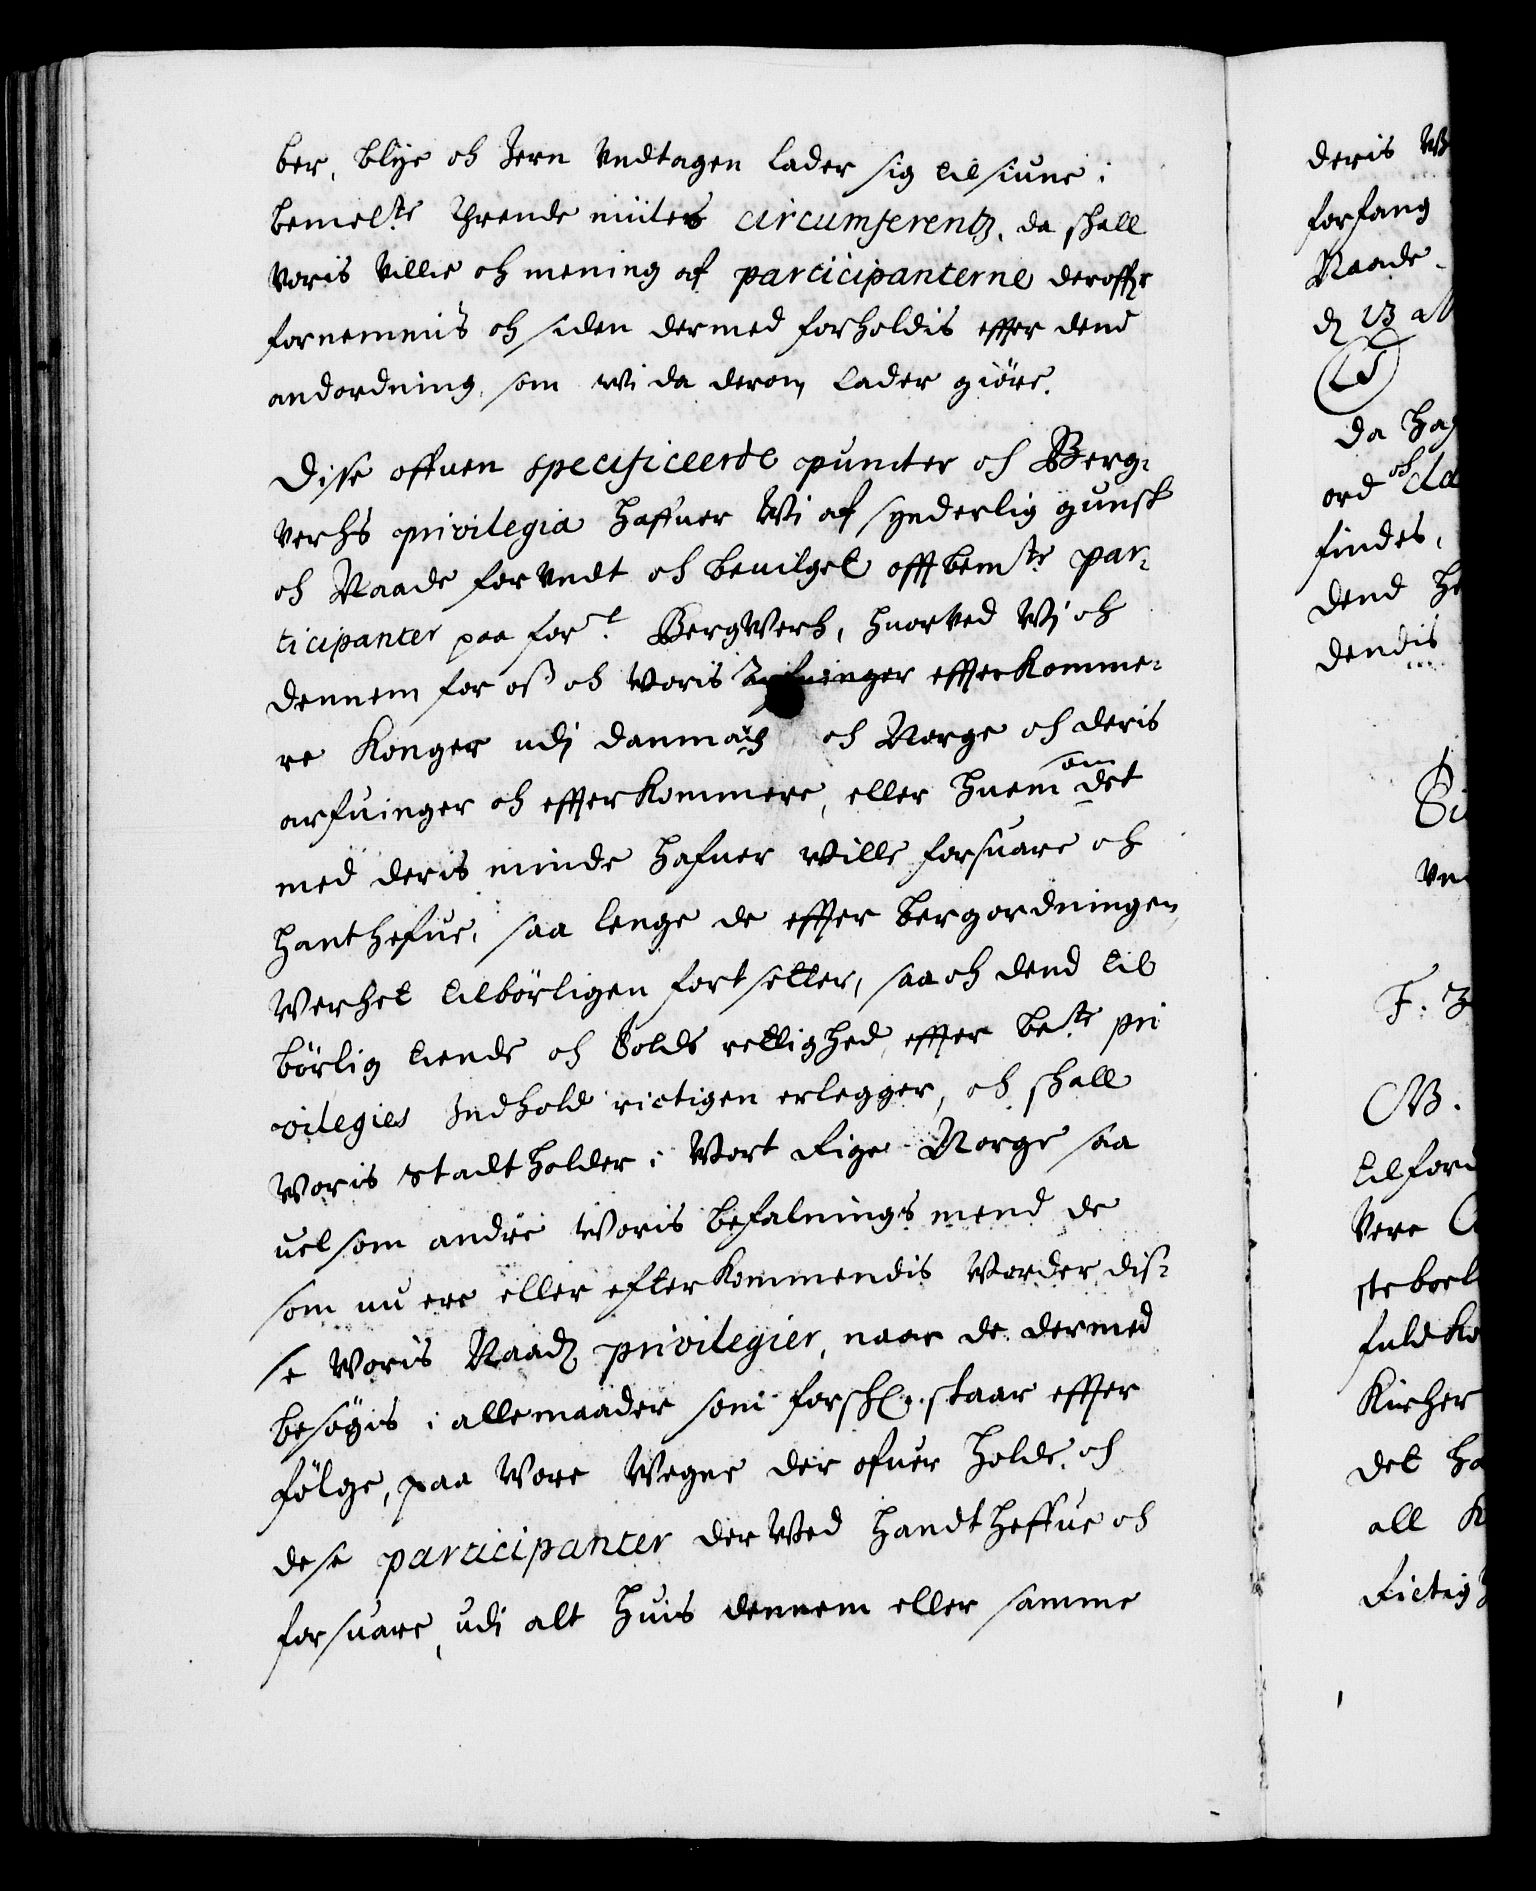 ber, blije och Jern Undtagen lader sig tilsiune i
bemelte Thrende miiles circumferentz, da skall
voris Villie och mening af participanterne deroffr
fornemmis och siden dermed forholdis effter dend
andordning, som wi da derom lader giöre.
Disse offuen specificeerde puncter och Berg-
verchs privilegia haffuer Wi af synderlig gunst
och Naade forundt och beuilget offtbemte par-
ticipanter paa fort BergWerch, huorved Wi och
dennem for oss och Woris Arfuinger effterkomme-
re Konger udj Danmarch och Norge och deris
arfuinger och effterkommere, eller huem som det
med deris minde hafuer wille forsuare och
hanthefue, saa lenge de effter bergordningen,
Werchet tilbörligen fortsetter, saa och dend til
börlig tiende och Tolds rettighed, effter bete pri
vilegies Indhold rictigen erlegger, och skall
Woris Stadtholder i Wort Rige Norge saa
uelsom andre Woris befalnings mend de
som nu ere eller efterkommendis Worder, dis-
se Woris Naadz privilegier, naar de dermed
besögis i allemaader som forsch. staar effter
fölge, paa Wore Wegne der ofuer holde, och
dese participanter derWed handtheffue och
forsuare, udi alt huis dennem eller samme
deris
forfang
Naade
da
ord och
findes,
dend
dendis
F.
tilford
Vere
Kircher
det
all
Rictig